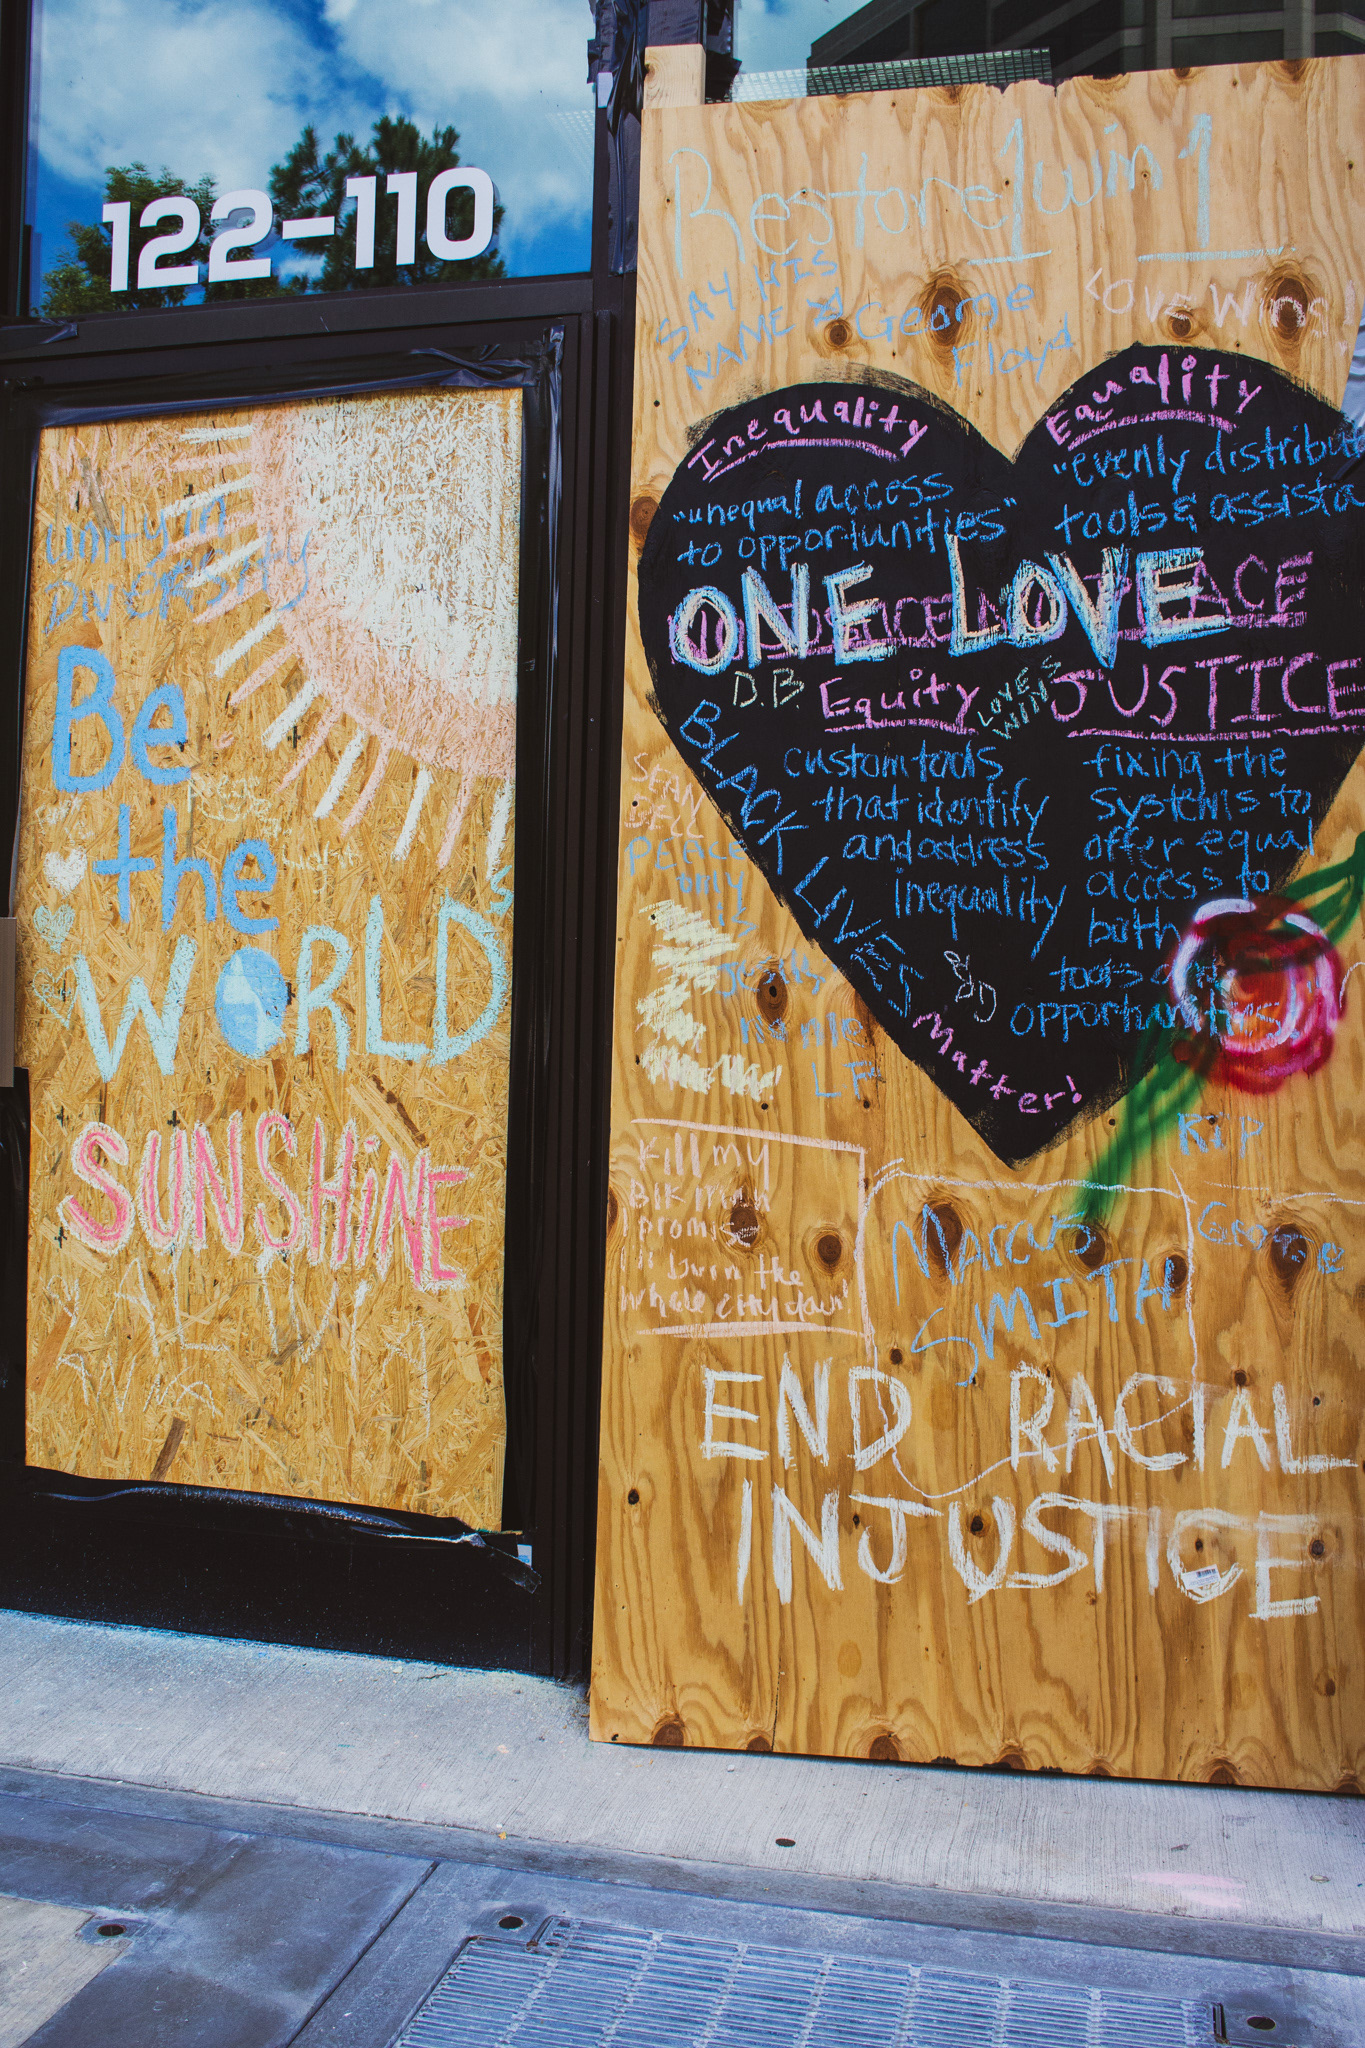 122-110
Unity in
Diversity
Be
the
WORLD's
SUNSHINE
Restore 1 win 1
SAY HIS
NAME
George
Floyd
LOVE Wins!
Inequality
"unequal access
to opportunities"
Equality
"evenly distribut
tools & assista
ONE LOVE
D.B.
Equity
custom tools
that identify
and address
inequality
LOVES
WINS
JUSTICE
fixing the
systems to
offer equal
access to
both
tools and
opportunities
BLACK LIVES
Matter!
SEAN
BELL
PEACE
only
is
RIP
Kill my
Blk man
I promise
I'll burn the
whole city down!
MARCUS
SMITH
George
END RACIAL
INJUSTICE